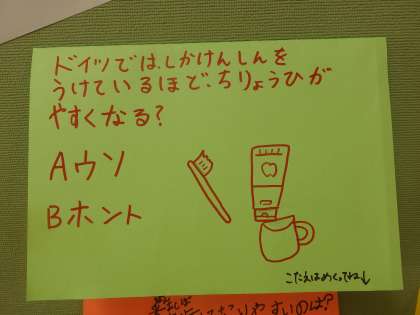 ドイツでは、しかけんしんを
うけているほど、ちりょうひが
やすくなる？
Aウソ
Bホント
こたえはめくってね↓